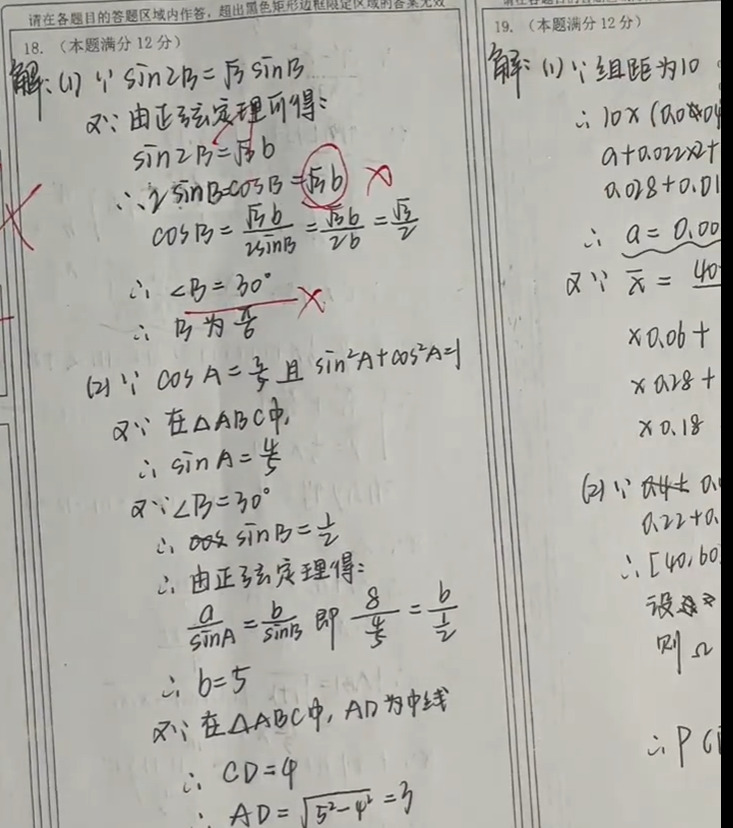 请在各题目的答题区域内作答,超出黑色矩形边框限定区域的答案无效
18. (本题满分12分)
解:(1) ∵ sin2B=√3 sinB
又∵由正弦定理可得:
sin2B=√3b
∴2sinBcosB=√3b
cosB=√3b/2sinB=√3b/2b=√3/2
∴ ∠B=30°
∴ B为π/6
(2)∵ cosA=3/5且sin²A+cos²A=1
又∵在△ABC中,
∴ sinA=4/5
又∵∠B=30°
∴ sinB=1/2
∴由正弦定理得:
a/sinA=b/sinB 即 8/(4/5)=b/(1/2)
∴ b=5
又∵在△ABC中,AD为中线
∴ CD=4
∴ AD=√(5²-4²)=3
19. (本题满分12分)
解:(1)∵组距为10
∴10×(0.004
a+0.022×2+
0.028+0.01
∴ a=0.00
又∵ x̄=40
×0.06+
×0.28+
×0.18
(2)∵ 0.0
0.22+0.
∴[40,60
设
则Ω
∴P(